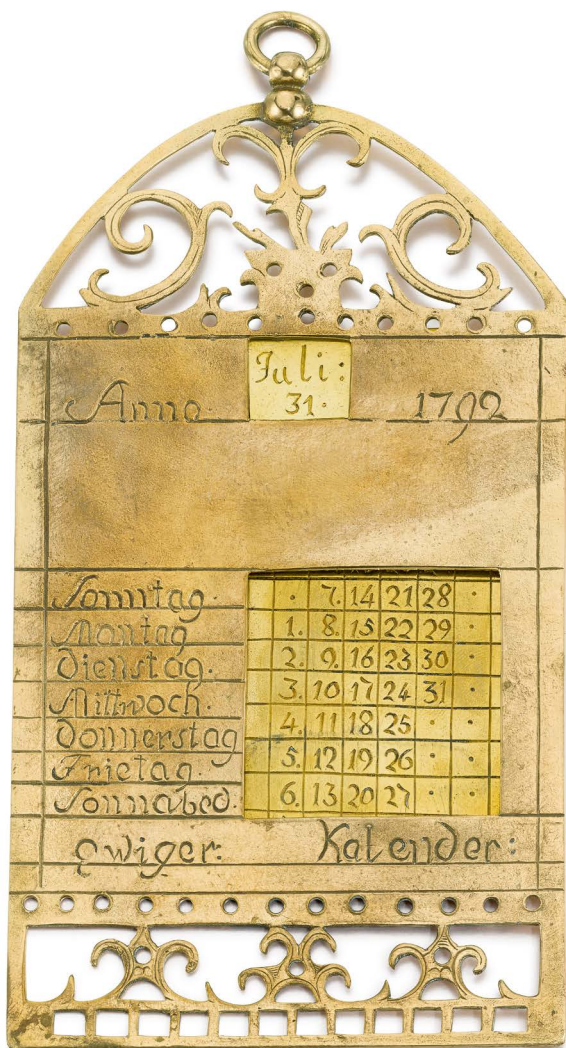 Juli:
Anno. 31. 1792
Sonntag. · 7. 14 21 28 ·
Montag 1. 8. 15 22 29 ·
Dienstag. 2. 9. 16 23 30 ·
Mittwoch. 3. 10 17 24 31 ·
Donnerstag 4. 11 18 25 · ·
Frietag. 5. 12 19 26 · ·
Sonnabed. 6. 13 20 27 · ·
Ewiger: Kalender: